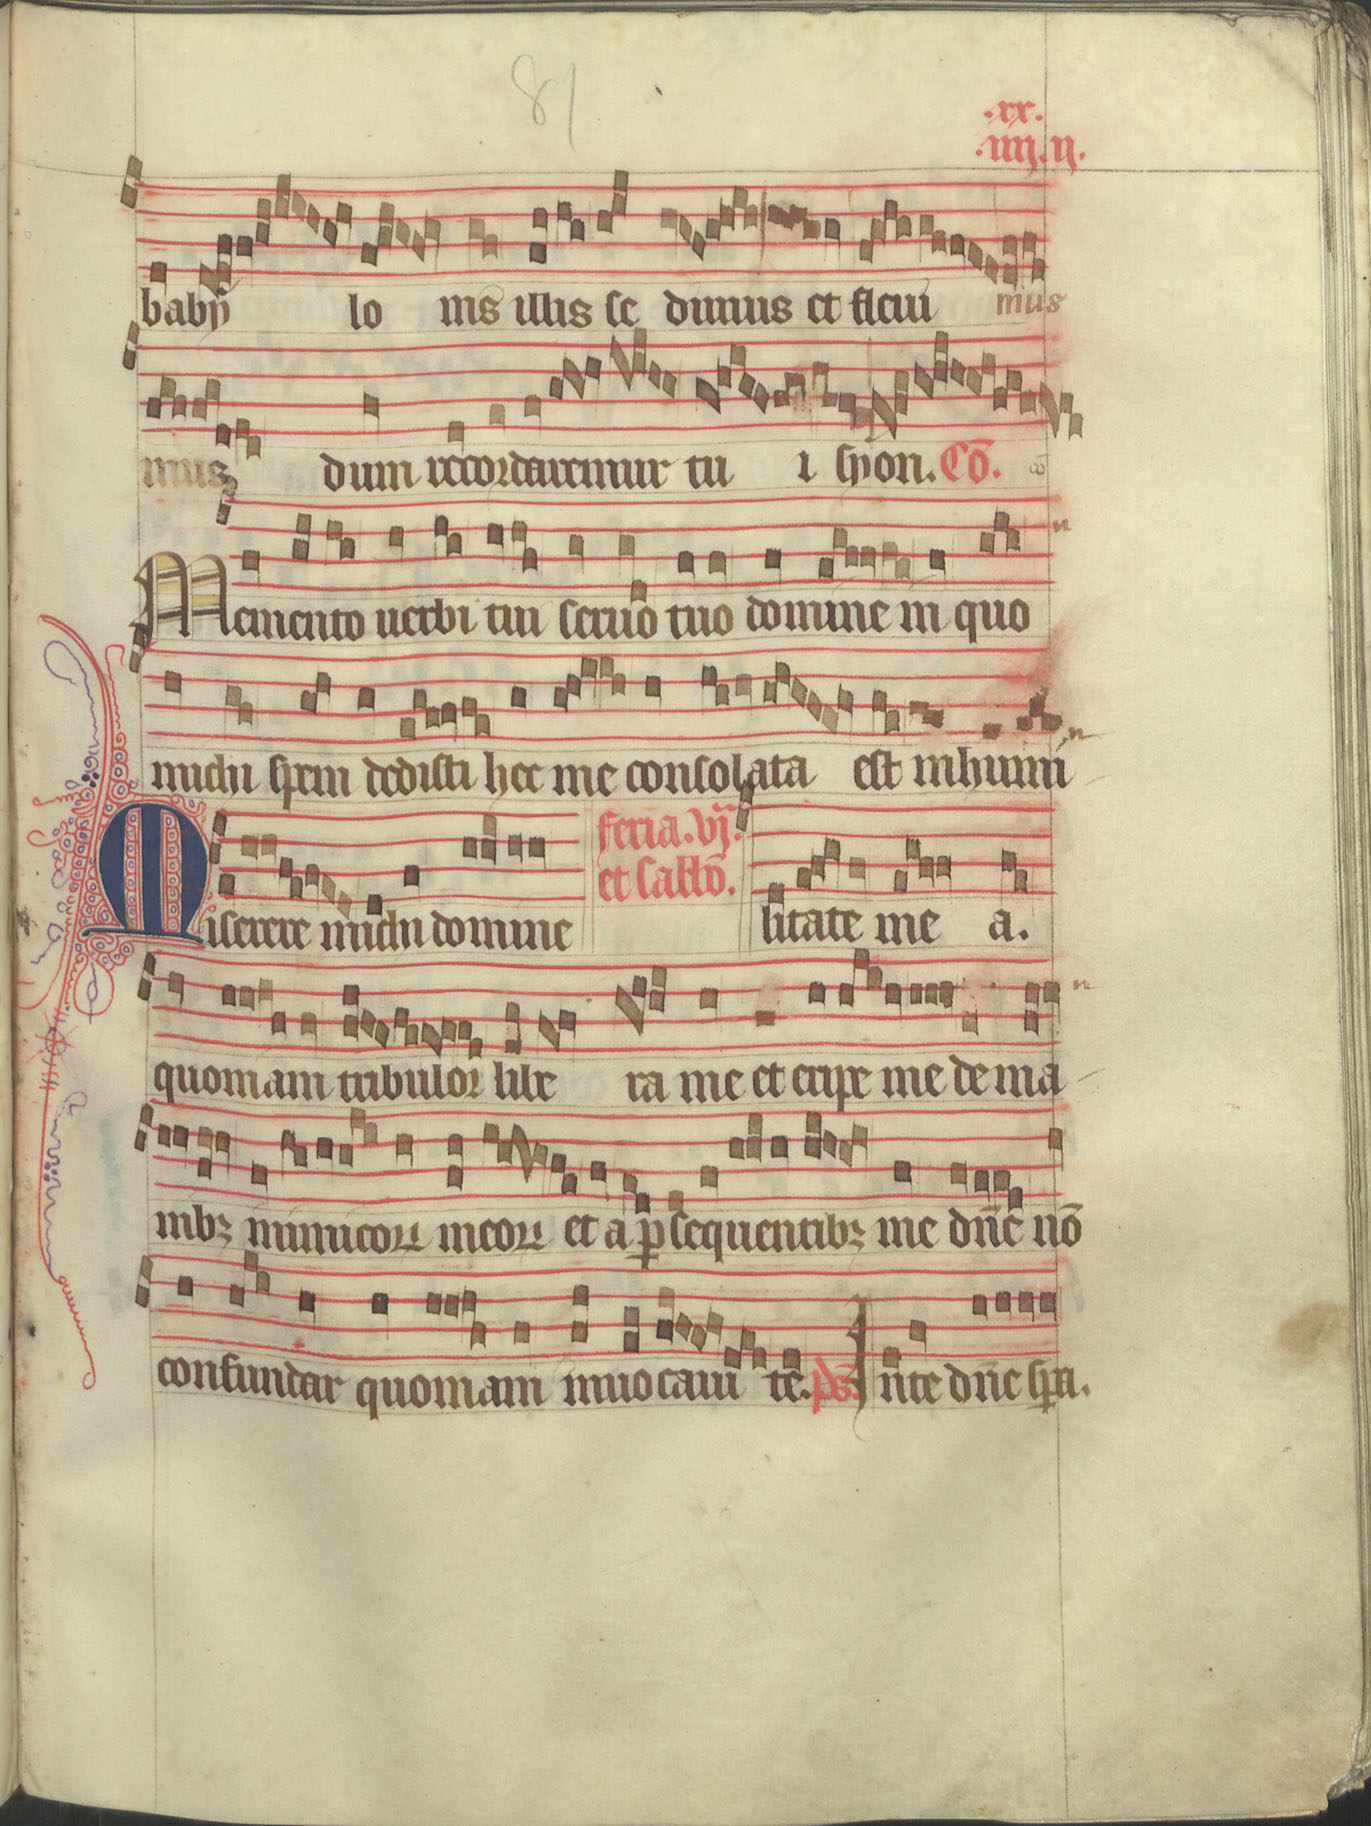 81
.xx.
.iiij.ij.
baby lo nis illis se dimus et fleui mus
mus dum recordaremur tu i syon. Cō.
Memento uerbi tui seruo tuo domine in quo
michi spem dedisti hec me consolata est in humi
Miserere michi domine
feria. vj.
et sabbō.
litate me a.
quoniam tribulor libe ra me et eripe me de ma
nibꝫ inimicoꝝ meoꝝ et a ꝑsequentibꝫ me dn̄e nō
confundar quoniam inuocaui te. ps̄. In te dn̄e spa.